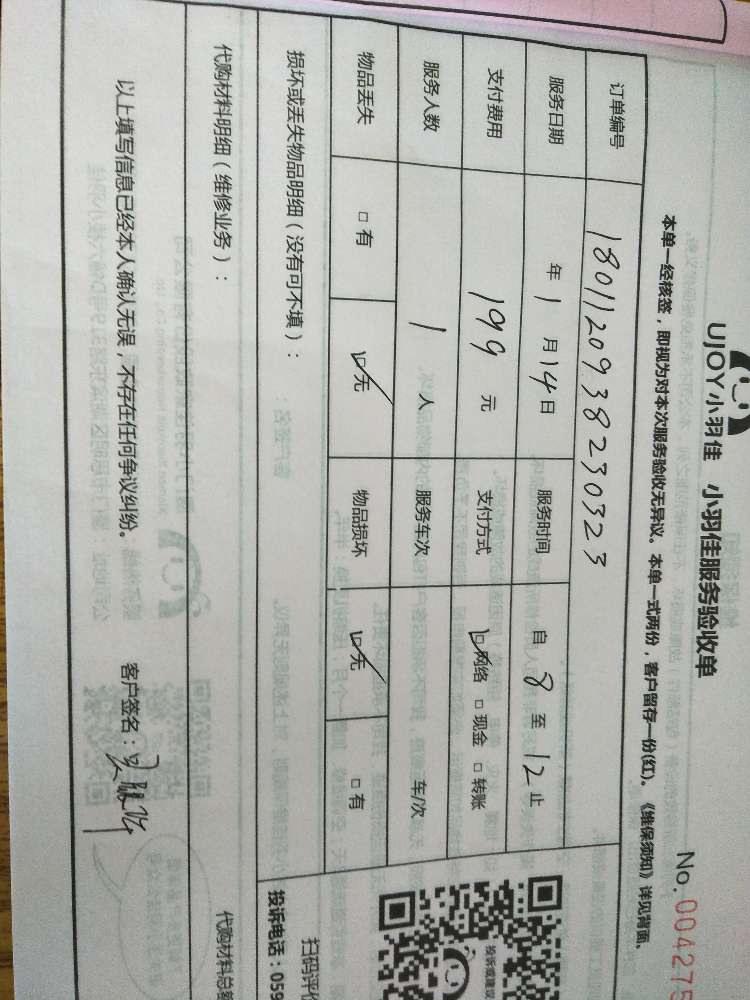 UJOY小羽佳 小羽佳服务验收单
No. 004275
本单一经核签，即视为对本次服务验收无异议。本单一式两份，客户留存一份(红)。《维保须知》详见背面。
订单编号 1801120938230323
服务日期 年 1 月 14 日 服务时间 自 8 至 12 止
支付费用 199 元 支付方式 ☑网络 □现金 □转账
服务人数 1 人 服务车次 车/次
物品丢失 □有 ☑无 物品损坏 ☑无 □有
损坏或丢失物品明细（没有可不填）：
代购材料明细（维修业务）：
代购材料总
以上填写信息已经本人确认无误，不存在任何争议纠纷。 客户签名：
投诉或建议
扫码评价
投诉电话：059